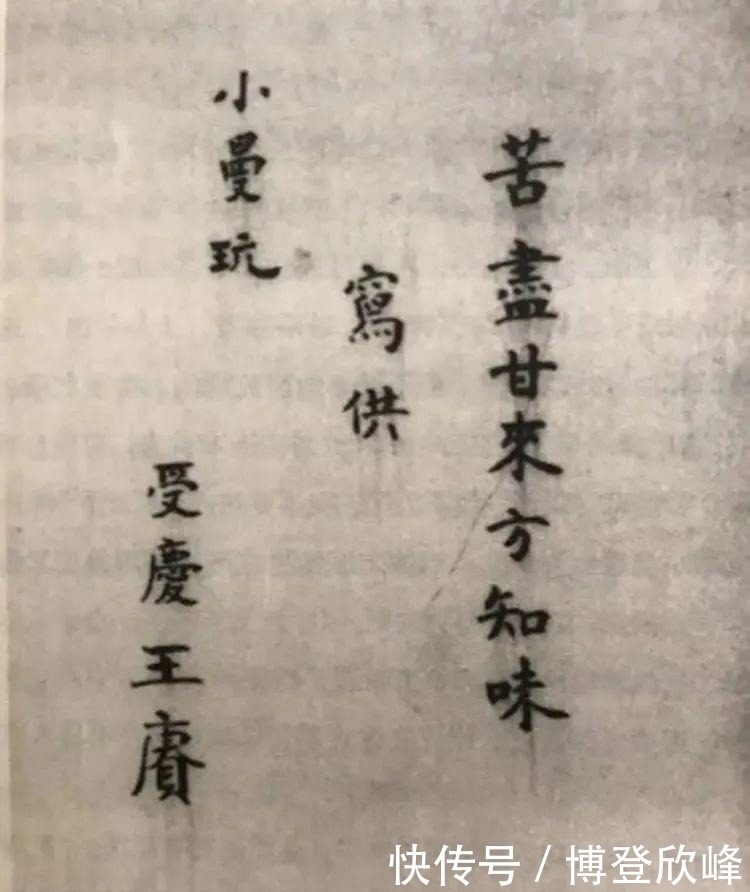 苦盡甘來方知味
寫供
小曼玩
受慶王賡
快传号 / 博登欣峰